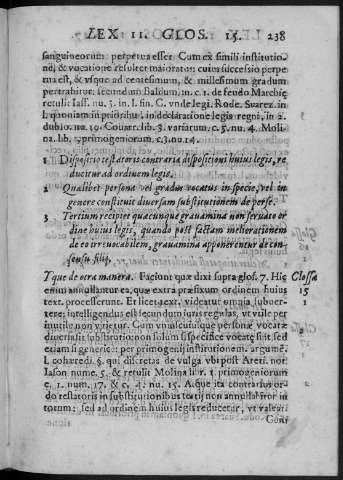 LEX II. GLOS. 15. 238
sanguineorum perpetua esset. Cum ex simili institutio-
ne, & vocatione resultet maioratus: cuius successio perpe
tua est, & vsque ad centesimum, & millesimum gradum
pertrahitur. secundum Baldum. in. c. 1. de feudo Marchiæ
retulit Iass. nu. 3. in. l. fin. C. vnde legi. Rode. Suarez. in
l. quoniam in prioribus. in declaratione legis regni, in 2.
dubio. nu. 19. Couarr. lib. 3. variarum. c. 5. nu. 4. Moli
na. lib. 1. primogeniorum. c. 3. nu. 14.
1 Dispositio testatoris contraria dispositioni huius legis, re
ducitur ad ordinem legis.
2 Qualibet persona vel gradus vocatus in specie, vel in
genere constituit diuersam substitutionem de per se.
3 Tertium recipiet quacunque grauamina non seruato or
dine huius legis, quando post factam meliorationem
de eo irreuocabilem, grauamina apponerentur de con-
sensu filij.
Y que de otra manera. Faciunt quæ dixi supra glos. 7. Hic Glossa
enim annullantur ea, quæ extra præfixum ordinem huius 15
text. processerunt. Et licet text. videatur omnia subuer- 1
tere: intelligendus est secundum iura regulas, vt vtile per
inutile non vitietur. Cum vniuscuiusque personæ vocatæ 2
diuersa sit substitutio: non solum si specifice vocatę sint, sed
etiam si generice: per primogenij institutionem. argume.
l. cohæredi. §. qui discretas de vulga. vbi post Areti. not
Iason nume. 5. & retulit Molina libr. 1. primogeniorum
c. 1. num. 17. & c. 4. nu. 15. Atque ita contrarius or-
do testatoris in substitutionibus tertij non annullabitur in
totum: sed ad ordinem huius legis reducetur, vt valeat
Cons